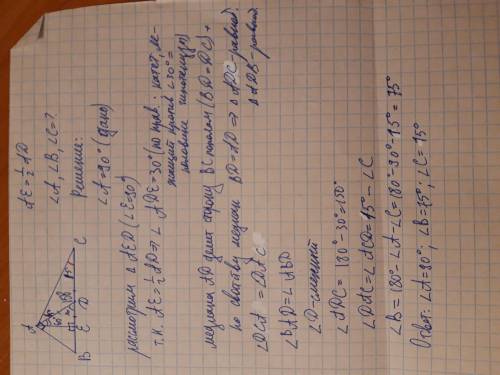 AE = ½ AD
∠A, ∠B, ∠C = ?
Решение:
∠A = 90° (дано)
A
B E D C
15°
рассмотрим △ AED (∠E = 90)
т.к. AE = ½ AD ⇒ ∠ADE = 30° (по прав.: катет, ле-
жащий против ∠30° =
половине гипотенузы)
медиана AD делит сторону BC пополам (BD = DC) +
по свойству медианы BD = AD ⇒ △ ADC - равноб.
△ ADB - равноб.
∠DCA = ∠DAC
∠BAD = ∠ABD
∠D - смежный
∠ADC = 180° - 30° = 150°
∠DAC = ∠ACD = 15° - ∠C
∠B = 180° - ∠A - ∠C = 180° - 90° - 15° = 75°
Ответ: ∠A = 90°; ∠B = 75°; ∠C = 15°